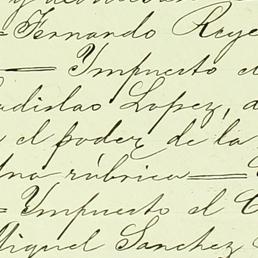 =Fernando Reye
— Impuesto e
adislao Lopez, d
el poder de la
una rúbrica—
=Impuesto el C
Miguel Sanchez